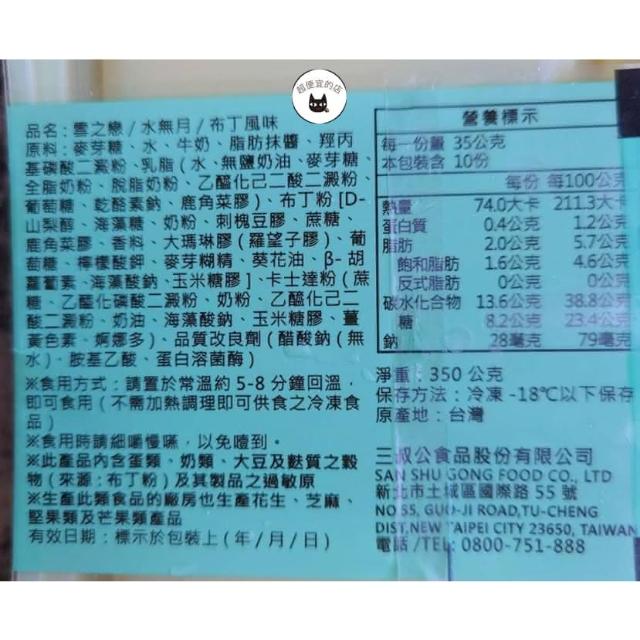 超便宜的店
品名：雪之戀/水無月/布丁風味
原料：麥芽糖、水、牛奶、脂肪抹醬、羥丙
基磷酸二澱粉、乳脂(水、無鹽奶油、麥芽糖、
全脂奶粉、脫脂奶粉、乙醯化己二酸二澱粉、
葡萄糖、乾酪素鈉、鹿角菜膠)、布丁粉[D-
山梨醇、海藻糖、奶粉、刺槐豆膠、蔗糖、
鹿角菜膠、香料、大瑪琳膠(羅望子膠)、葡
萄糖、檸檬酸鉀、麥芽糊精、葵花油、β-胡
蘿蔔素、海藻酸鈉、玉米糖膠]、卡士達粉(蔗
糖、乙醯化磷酸二澱粉、奶粉、乙醯化己二
酸二澱粉、奶油、海藻酸鈉、玉米糖膠、薑
黃色素、婀娜多)、品質改良劑(醋酸鈉(無
水)、胺基乙酸、蛋白溶菌酶)
※食用方式：請置於常溫約5-8分鐘回溫，
即可食用(不需加熱調理即可供食之冷凍食
品)
※食用時請細嚼慢嚥，以免噎到。
※此產品內含蛋類、奶類、大豆及麩質之穀
物(來源:布丁粉)及其製品之過敏原
※生產此類食品的廠房也生產花生、芝麻、
堅果類及芒果類產品
有效日期：標示於包裝上(年/月/日)
營養標示
每一份量 35公克
本包裝含 10份
每份 每100公克
熱量 74.0大卡 211.3大卡
蛋白質 0.4公克 1.2公克
脂肪 2.0公克 5.7公克
飽和脂肪 1.6公克 4.6公克
反式脂肪 0公克 0公克
碳水化合物 13.6公克 38.8公克
糖 8.2公克 23.4公克
鈉 28毫克 79毫克
淨重：350 公克
保存方法：冷凍 -18℃以下保存
原產地：台灣
三叔公食品股份有限公司
SAN SHU GONG FOOD CO., LTD
新北市土城區國際路 55 號
NO 55, GUO-JI ROAD,TU-CHENG
DIST,NEW TAIPEI CITY 23650, TAIWAN
電話 /TEL: 0800-751-888